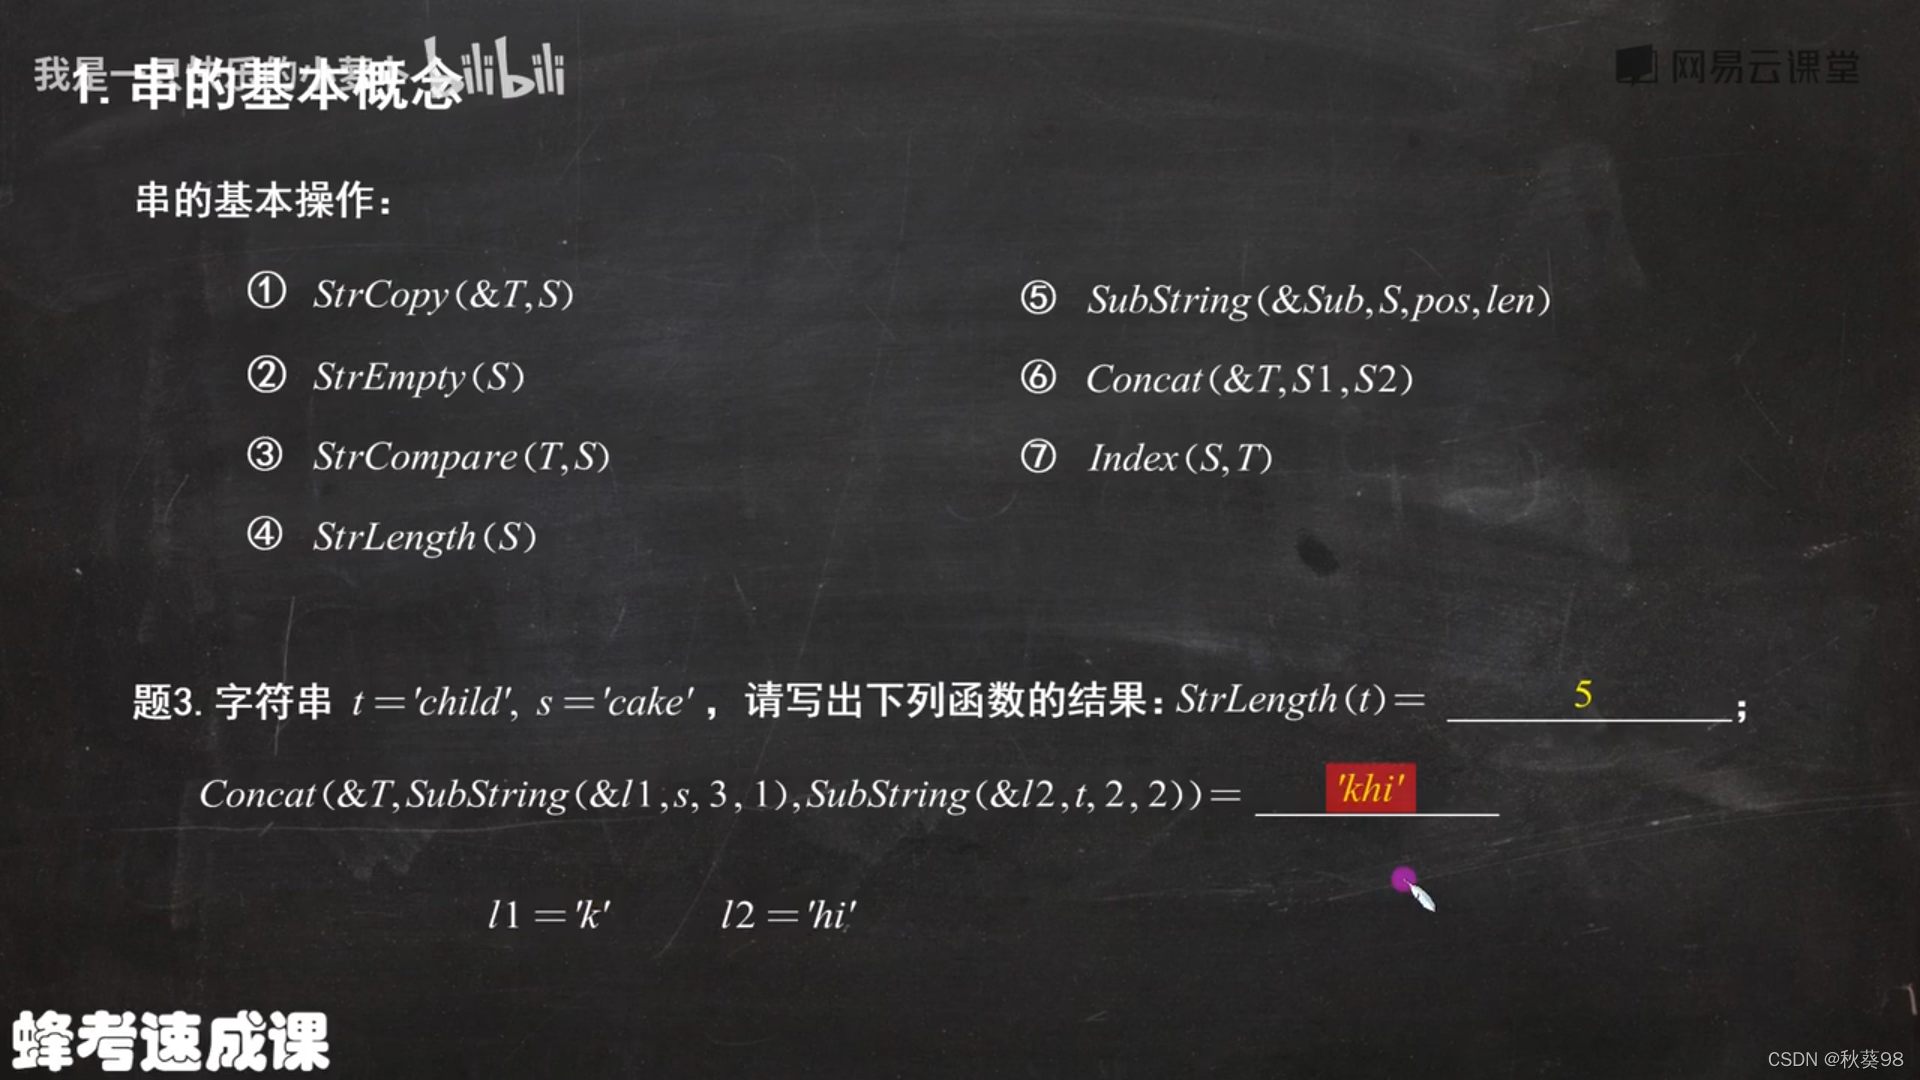 bilibili
网易云课堂
1. 串的基本概念
串的基本操作：
① StrCopy(&T,S)
② StrEmpty(S)
③ StrCompare(T,S)
④ StrLength(S)
⑤ SubString(&Sub,S,pos,len)
⑥ Concat(&T,S1,S2)
⑦ Index(S,T)
题3. 字符串 t='child', s='cake'，请写出下列函数的结果：StrLength(t)= 5 ；
Concat(&T,SubString(&l1,s,3,1),SubString(&l2,t,2,2))= 'khi'
l1='k' l2='hi'
蜂考速成课
CSDN @秋葵98